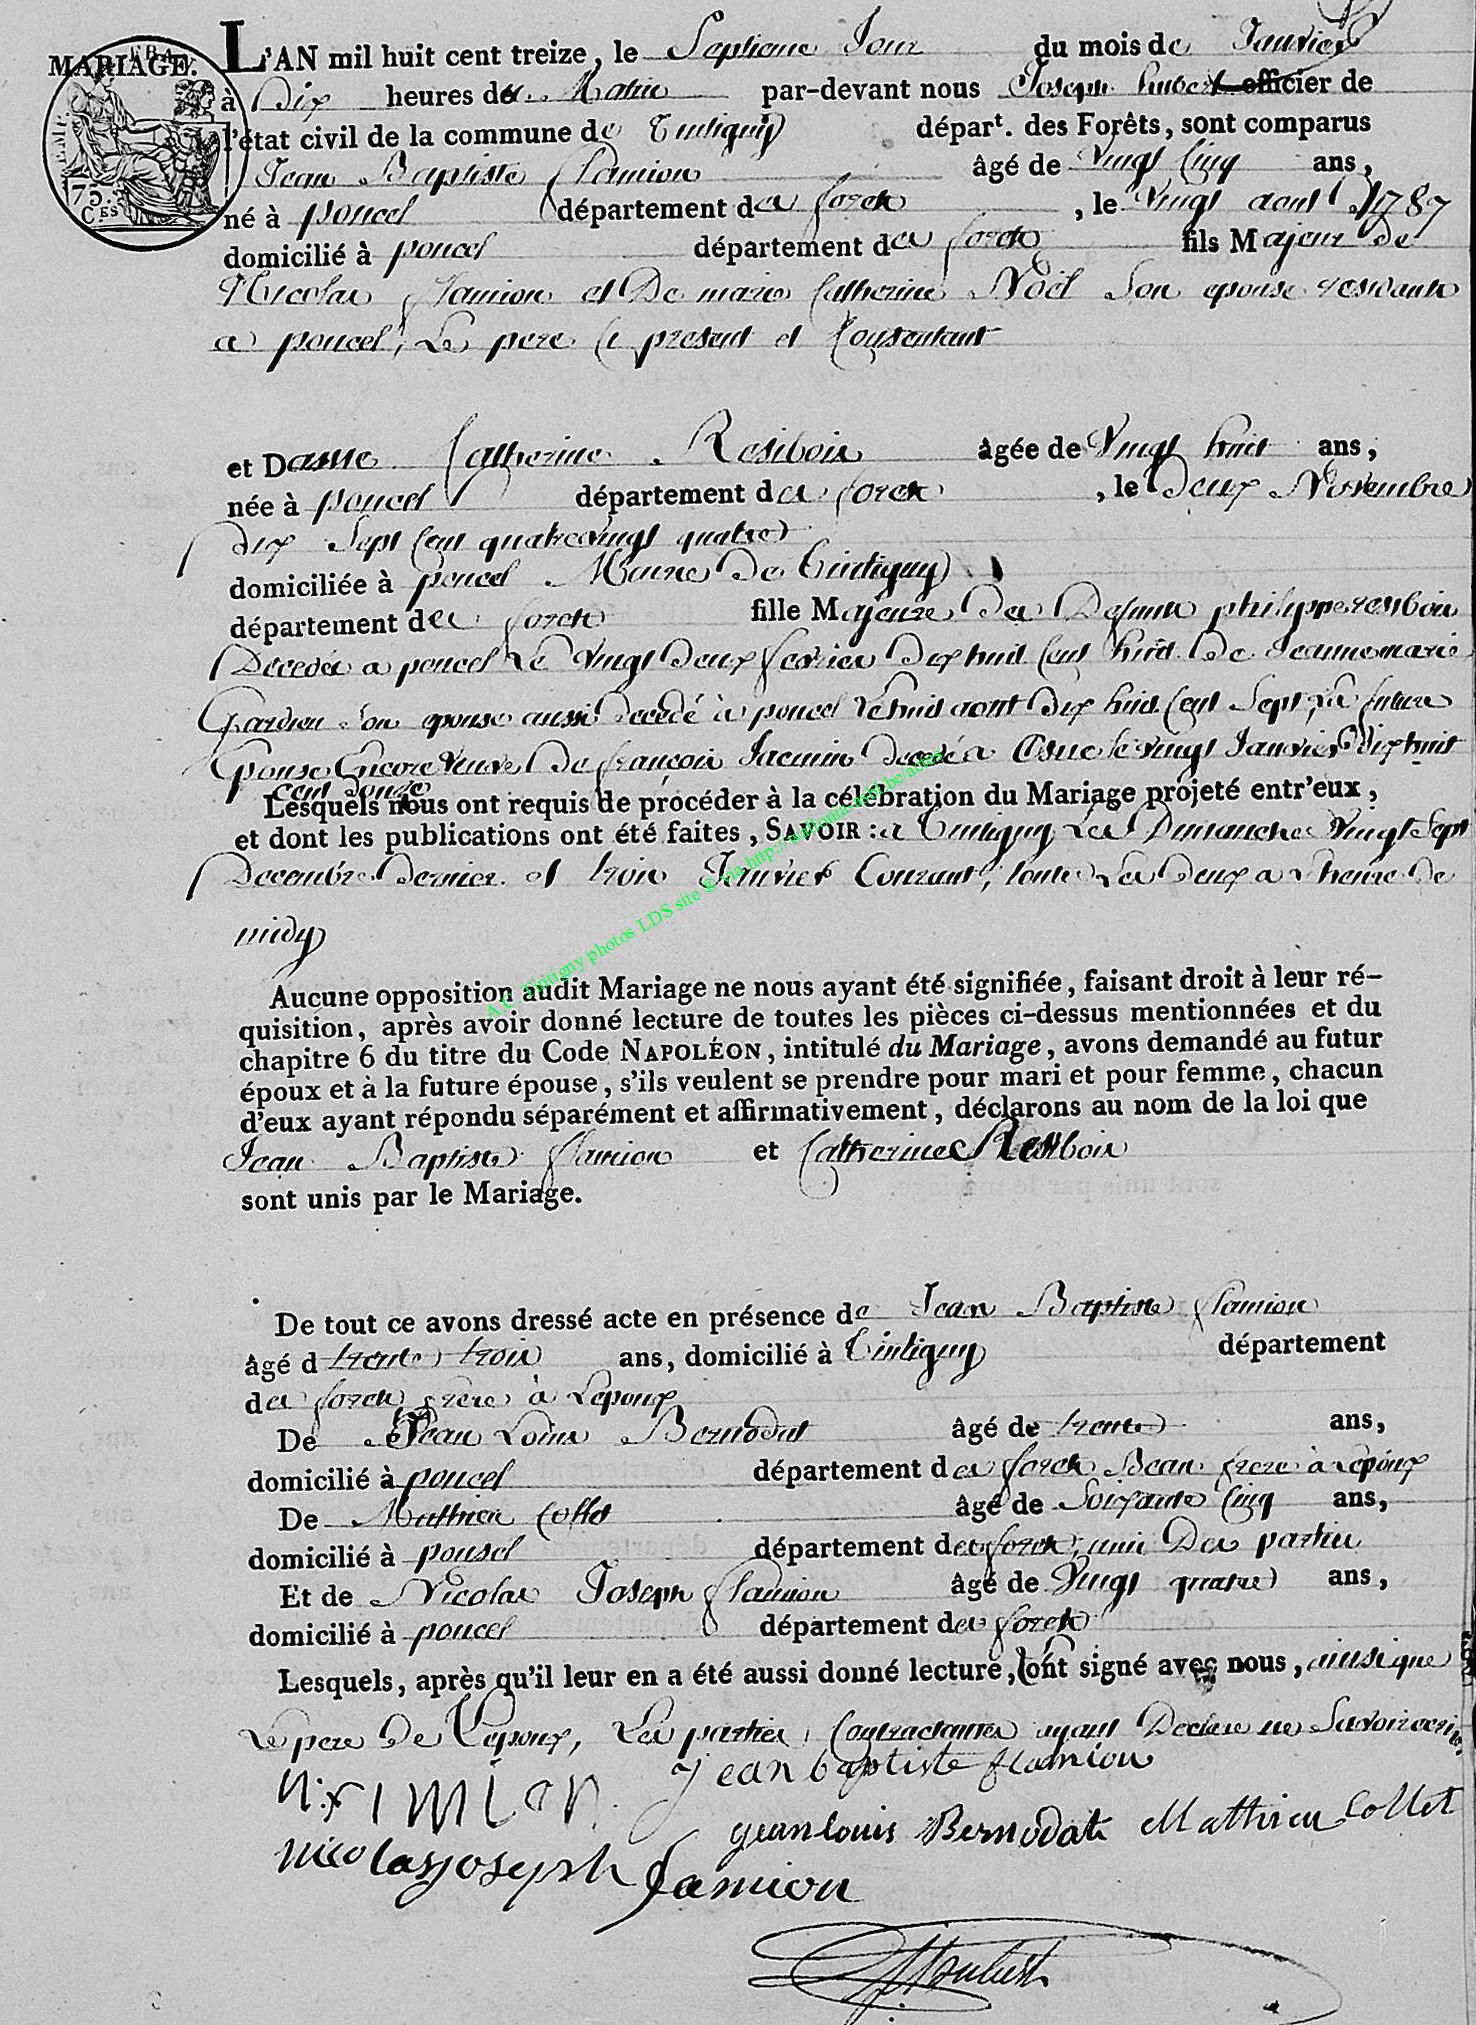 MARIAGE.
L'AN mil huit cent treize, le Septieme Jour du mois de Janvier
à Dix heures du Matin par-devant nous Joseph hubert officier de
l'état civil de la commune de Tintigny départ. des Forêts, sont comparus
Jean Baptiste flamion âgé de Vingt Cinq ans,
né à poncel département des forets, le Vingt aout 1787
domicilié à poncel département des forets fils Majeur de
Nicolas flamion et De marie Catherine Noël Son epouse residants
a poncel, Le pere ci present et Consentant
et Dame Catherine Resibois âgée de Vingt huit ans,
née à poncel département des forets, le Deux Novembre
dix Sept Cent quatrevingt quatre
domiciliée à poncel Mairie De Tintigny
département des forets fille Majeure Des Defunts philippe resibois
Decedé a poncel Le Vingt Deux fevrier Dix huit Cent huit De Jeanne marie
Gardien Son epouse aussi decedé à poncel le huit aout Dix huit Cent Sept, La future
Epouse Encore Veuve De françois Jacmin decedé a le vingt Janvier Dix huit
cent douze
Lesquels nous ont requis de procéder à la célébration du Mariage projeté entr'eux,
et dont les publications ont été faites, SAVOIR : a Tintigny Les Dimanches Vingt Sept
Decembre Dernier et trois Janvier Courant, toutes Les Deux a Lheure De
midy
Aucune opposition audit Mariage ne nous ayant été signifiée, faisant droit à leur ré-
quisition, après avoir donné lecture de toutes les pièces ci-dessus mentionnées et du
chapitre 6 du titre du Code NAPOLÉON, intitulé du Mariage, avons demandé au futur
époux et à la future épouse, s'ils veulent se prendre pour mari et pour femme, chacun
d'eux ayant répondu séparément et affirmativement, déclarons au nom de la loi que
Jean Baptiste flamion et Catherine Resibois
sont unis par le Mariage.
De tout ce avons dressé acte en présence de Jean Baptiste flamion
âgé d trente trois ans, domicilié à Tintigny département
des forets frere à Lepoux
De Jean Louis Bernodat âgé de trente ans,
domicilié à poncel département des forets Beau frere à Lepoux
De Mathieu Collet âgé de Soixante Cinq ans,
domicilié à poncel département des forets, ami Des parties
Et de Nicolas Joseph flamion âgé de Vingt quatre ans,
domicilié à poncel département des forets
Lesquels, après qu'il leur en a été aussi donné lecture, ont signé avec nous, ainsi que
Le pere De Lepoux, Les parties Contractantes ayant Declare ne Savoir ecrire.
jean baptiste flamion
jean louis Bernodat Mathieu Collet
nicolas joseph flamion
Hubert
75 Ces
A.C. Tintigny photos LDS site